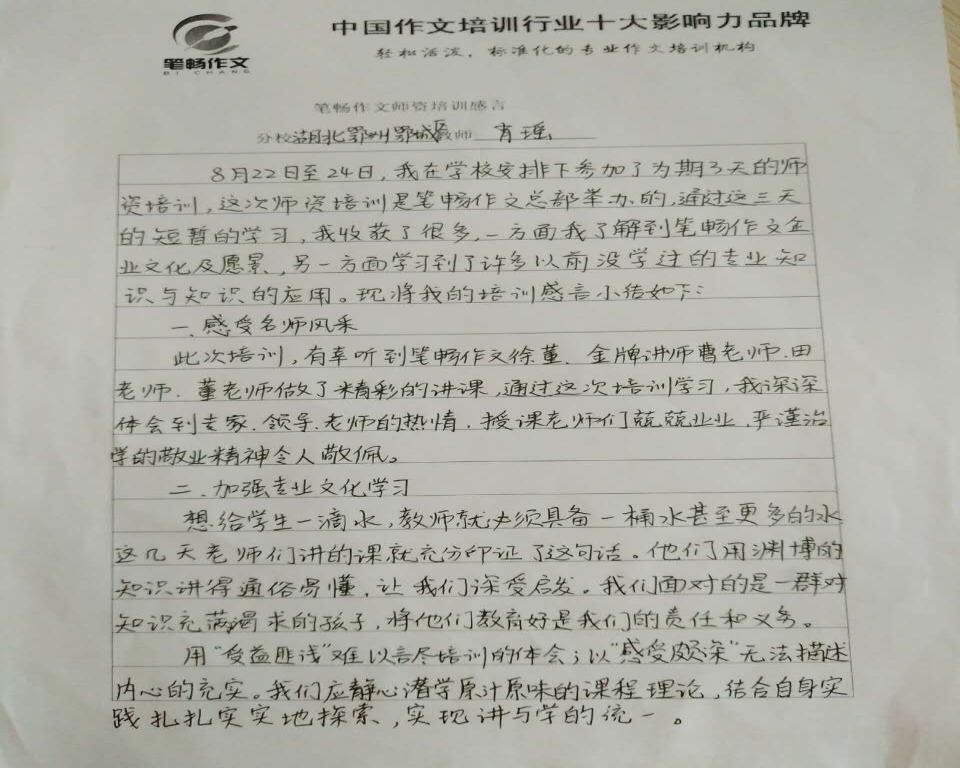 中国作文培训行业十大影响力品牌
轻松活泼，标准化的专业作文培训机构
笔畅作文
BI CHANG
笔畅作文师资培训感言
分校湖北鄂州鄂城区教师 肖瑶
8月22日至24日，我在学校安排下参加了为期3天的师
资培训，这次师资培训是笔畅作文总部举办的，通过这三天
的短暂的学习，我收获了很多，一方面我了解到笔畅作文企
业文化及愿景，另一方面学习到了许多以前没学过的专业知
识与知识的应用。现将我的培训感言小结如下：
一、感受名师风采
此次培训，有幸听到笔畅作文徐董、金牌讲师曹老师、田
老师、董老师做了精彩的讲课，通过这次培训学习，我深深
体会到专家、领导、老师的热情，授课老师们兢兢业业，严谨治
学的敬业精神令人敬佩。
二、加强专业文化学习
想给学生一滴水，教师就必须具备一桶水甚至更多的水
这几天老师们讲的课就充分印证了这句话。他们用渊博的
知识讲得通俗易懂，让我们深受启发。我们面对的是一群对
知识充满渴求的孩子，将他们教育好是我们的责任和义务。
用“受益匪浅”难以言尽培训的体会；以“感受颇深”无法描述
内心的充实。我们应静心诸学原汁原味的课程理论，结合自身实
践扎扎实实地探索，实现讲与学的统一。